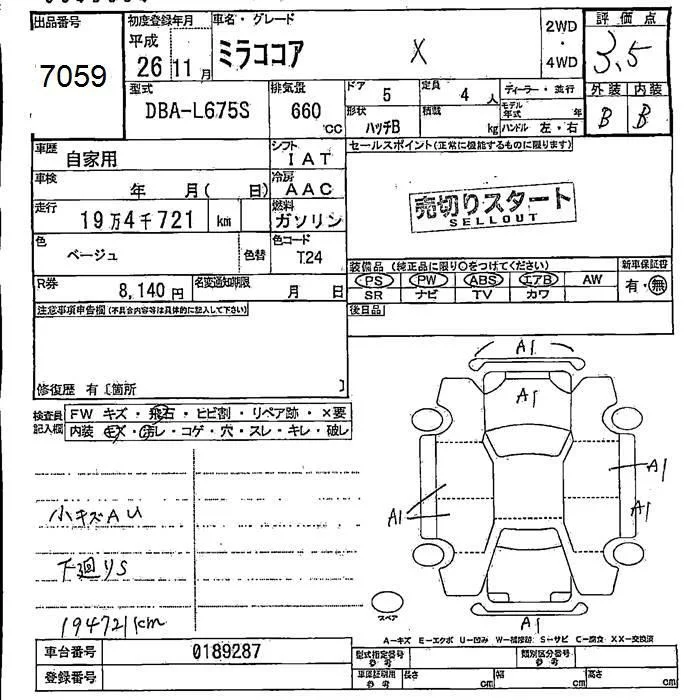 出品番号
7059
初度登録年月
平成
26 11 月
車名・グレード
ミラココア X
2WD
・
4WD
評価点
3.5
外装 内装
B B
型式
DBA-L675S
排気量
660
cc
ドア
5
定員
4 人
ディーラー・並行
形状
ハッチB
積載
kg
モデル年式 年
ハンドル 左・右
車歴
自家用
シフト
IAT
セールスポイント(正常に機能するものに限ります)
車検
年 月( 日)
冷房
AAC
走行
19万4千721 km
燃料
ガソリン
売切りスタート
SELLOUT
色
ベージュ
色替
色コード
T24
装備品 (純正品に限り○をつけてください)
新車保証書
PS PW ABS エアB AW
有・無
SR ナビ TV カワ
R券
8,140 円
名変通知期限
月 日
後日品
注意事項申告欄(不具合内容等は具体的に記入して下さい)
修復歴 有〔箇所 〕
検査員
記入欄
FW キズ・飛石・ヒビ割・リペア跡・×要
内装 キズ・汚レ・コゲ・穴・スレ・キレ・破レ
小キズAU
下廻りS
194721km
A1
A1
A1
A1
A1
A1
スペア
A-キズ E-エクボ U-凹み W-補修跡 S-サビ C-腐食 XX-交換済
車台番号
0189287
登録番号
型式指定番号
参考
類別区分番号
参考
車庫証明用
参考
長さ cm
幅 cm
高さ cm